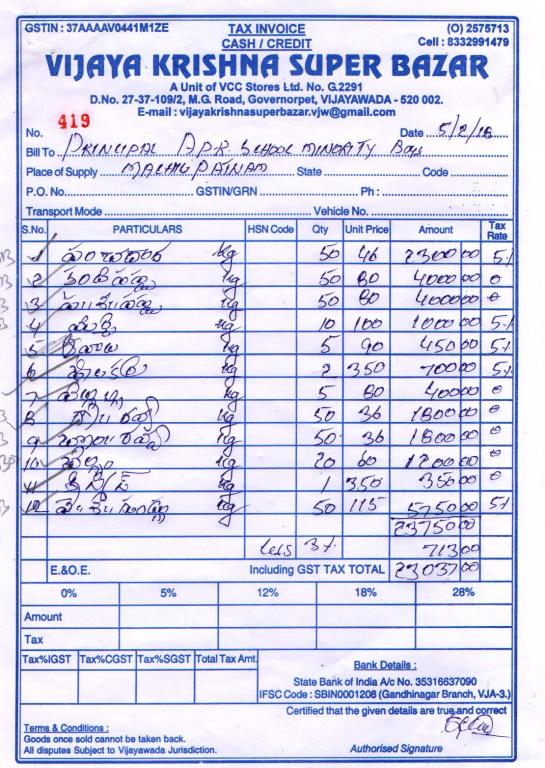 GSTIN : 37AAAAV0441M1ZE TAX INVOICE (O) 2575713
CASH / CREDIT Cell : 8332991479
VIJAYA KRISHNA SUPER BAZAR
A Unit of VCC Stores Ltd. No. G.2291
D.No. 27-37-109/2, M.G. Road, Governorpet, VIJAYAWADA - 520 002.
E-mail : vijayakrishnasuperbazar.vjw@gmail.com
No. 419 Date 5/2/18
Bill To PRINCIPAL A.P.R. SCHOOL MINORITY Boys
Place of Supply State Code
P.O. No. GSTIN/GRN Ph :
Transport Mode Vehicle No.
S.No. PARTICULARS HSN Code Qty Unit Price Amount Tax Rate
1 kg 50 46 2300 00 5%
2 kg 50 80 4000 00 0
3 kg 50 80 4000 00 0
4 kg 10 100 1000 00 5%
5 kg 5 90 450 00 5%
6 kg 2 350 700 00 5%
7 kg 5 80 400 00 0
8 kg 50 36 1800 00 0
9 kg 50 36 1800 00 0
10 kg 20 60 1200 00 0
11 kg 1 350 350 00 0
12 kg 50 115 5750 00 5%
23750 00
Less 3% 713 00
E.&O.E. Including GST TAX TOTAL 23037 00
0% 5% 12% 18% 28%
Amount
Tax
Tax%IGST Tax%CGST Tax%SGST Total Tax Amt.
Bank Details :
State Bank of India A/c No. 35316637090
IFSC Code : SBIN0001208 (Gandhinagar Branch, VJA-3.)
Certified that the given details are true and correct
Terms & Conditions :
Goods once sold cannot be taken back.
All disputes Subject to Vijayawada Jurisdiction. Authorised Signature